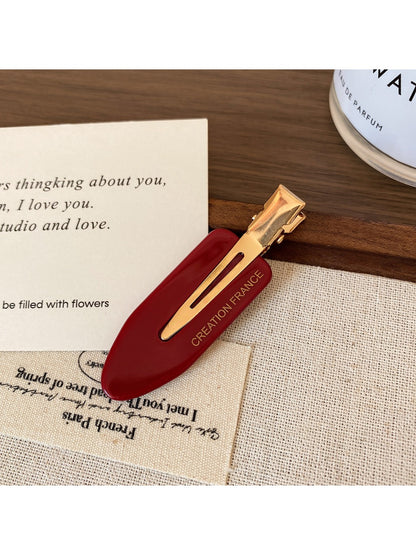 WAT
EAU DE PARFUM
rs thingking about you,
n, I love you.
tudio and love.
be filled with flowers
CREATION FRANCE
French Paris
I met you The
ad tree of spring